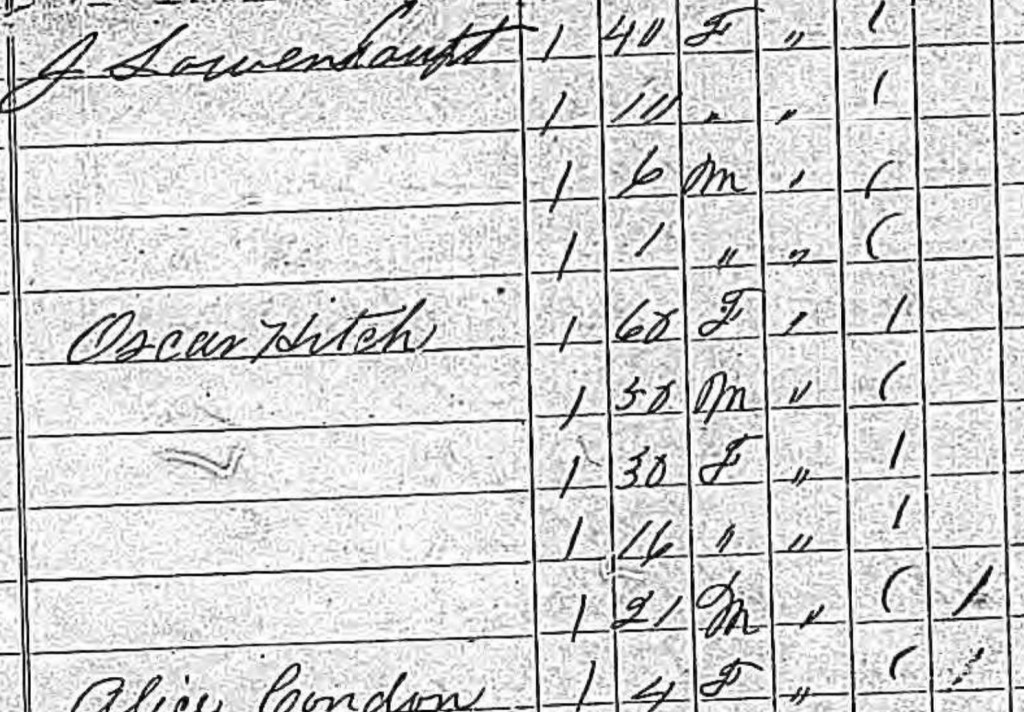 J Lowenhaupt 1 40 F " 1
1 10 " " 1
1 6 M " 1
1 1 " " 1
Oscar Hitch 1 60 F " 1
1 30 M " 1
1 30 F " 1
1 16 " " 1
1 21 M " 1 1
Alice Condon 1 4 F " 1 1